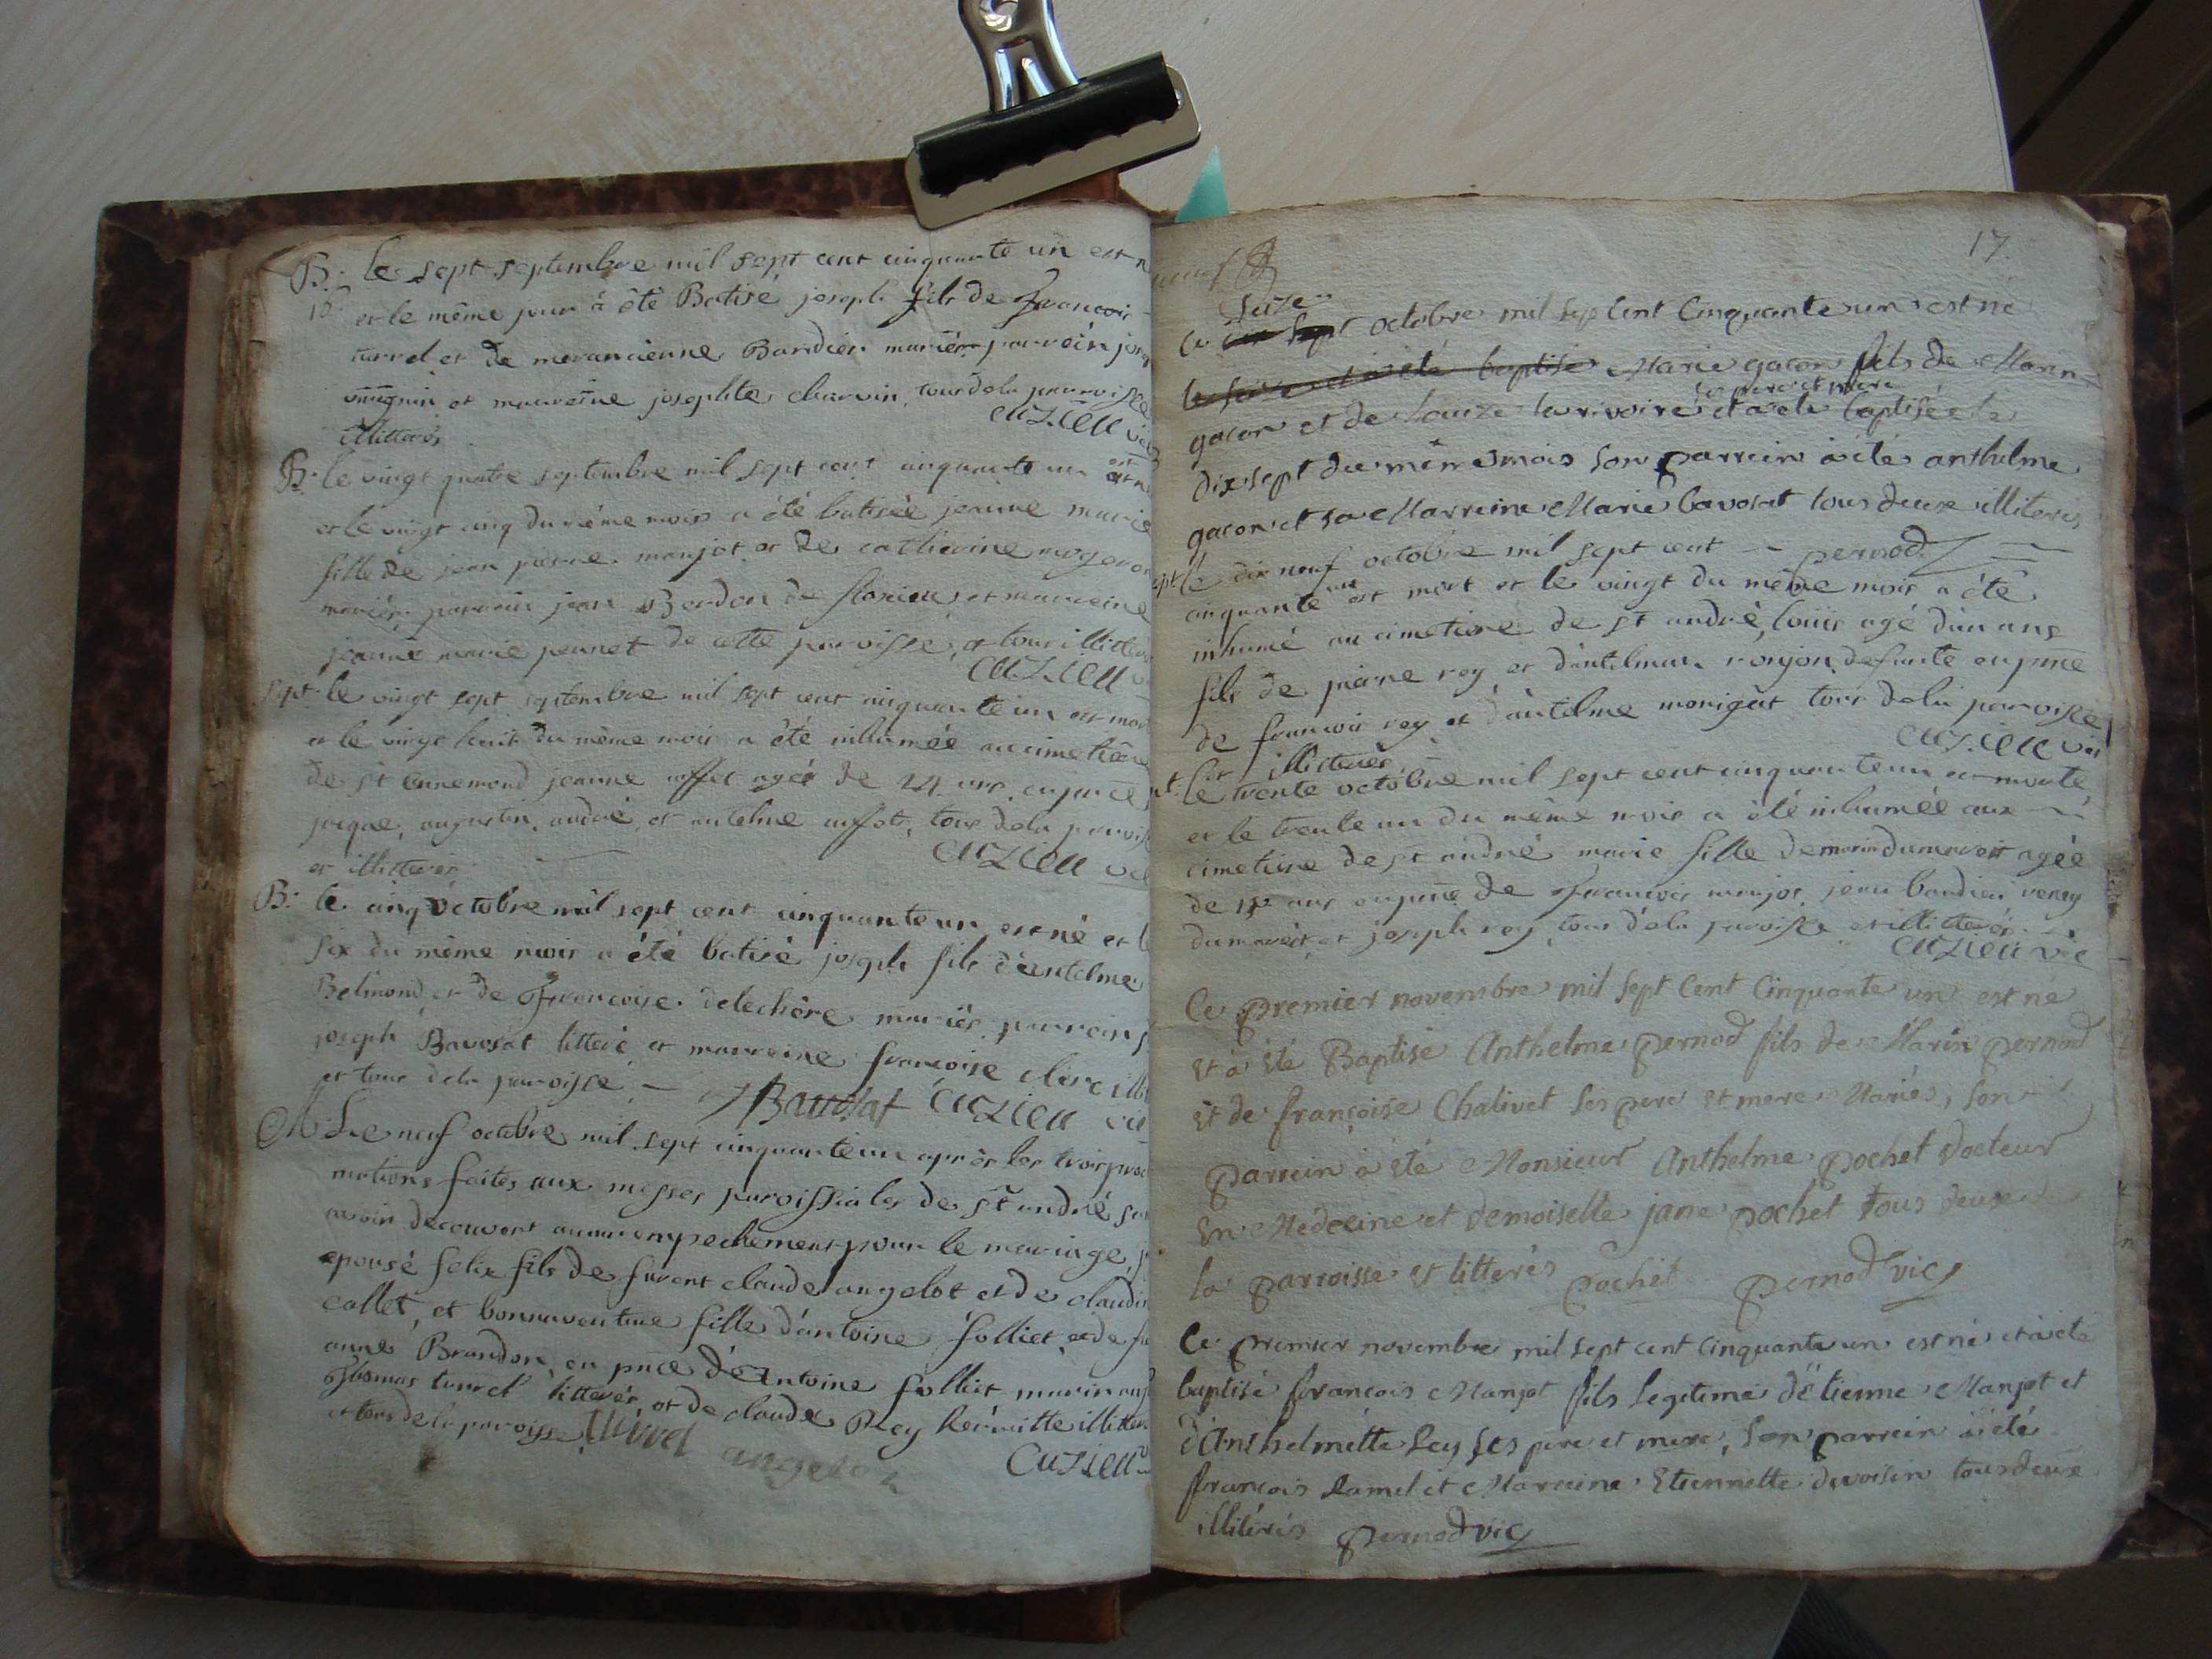 B. le sept septembre mil sept cent cinquante un est n
16 et le même jour à été Batisé joseph fils de Francois
turrel et de
Bardier mariés parroin jos
et maureine josephte charvin, tous de la parroisse
illitterés cuzieu vic
B. le vingt quatre septembre mil sept cent cinquante un est n
et le vingt cinq du même mois a été batisée jeanne marie
fille de jean pierre manjot et de catherine
mariés, parroin jean Berdon de et marreine
jeanne marie pernet de cette paroisse, et tous illitterés
cuzieu v
sept. le vingt sept septembre mil sept cent cinquante un est mor
et le vingt huit du même mois a été inhumée au cimetiere
de st Ennemond jeanne agée de 24 ans, en pnce
jacque, augustin, andré, et antelme tous de la parois
et illitterés cuzieu vi
B. le cinq octobre mil sept cent cinquante un est né et le
six du même mois a été batisé joseph fils d'antelme
Belmond et de Francoise delechère mariés, parroin
joseph Bavosat litteré et marreine francoise clerc illi
et tous de la paroisse. JBavosat cuzieu vic
M. Le neuf octobre mil sept cinquante un après les trois proc
mations faites aux messes paroissiales de st andré san
avoir decouvert aucun empechement pour le mariage, j
epousé felix fils de fuient claude angelot et de claudi
collet, et bonnaventure fille d'antoine folliet, et de fu
anne Brandon, en pnce de Antoine folliet, marin
Thomas turrel litterés, et de claude Rey hermitte illitteré
et tous de la paroisse Turrel angelot
cuzieu v
17.
seize
Ce octobre mil sept cent Cinquante un est né
Marie gacon fils de Marin
gacon et de Louize larivoire ses pere et mere et a été baptisé le
dix sept du même mois son parrein à été anthelme
gacon et sa Marreine Marie bavosat tous deux illiterés
pernod
sept. le dix neuf octobre mil sept cent
cinquante un est mort et le vingt du même mois a été
inhumé au cimetiere de st andré, louis agé d'un ans
fils de pierre rey et d'antelmaz ronjon, defunte en pnce
de francois rey et d'antelme tous de la paroisse
et illitterés cuzieu vic
le trente octobre mil sept cent cinquante un est morte
et le trente un du même mois a été inhumée aux
cimetiere de st andré marie fille de agée
de ans en pnce de Francois manjot, jean bardieu
et joseph rey, tous de la paroisse et illitterés
cuzieu vic
Ce premier novembre mil sept Cent Cinquante un est né
Et à été Baptisé Anthelme pernod fils de Marin pernod
Et de françoise Chalivet ses pere Et mere Mariés, son
parrein à été Monsieur Anthelme pochet docteur
En Medecine et demoiselle jane pochet tous deux de
la parroisse Et litterés pochet pernod vic
Ce premier novembre mil sept cent cinquante un est né et à été
baptisé francois Manjot fils legitime d'étienne Manjot et
d'Anthelmette Rey ses pere et mere, son parrein à été
francois Ramel et Marreine Etiennette devoisin tous deux
illiterés pernod vic